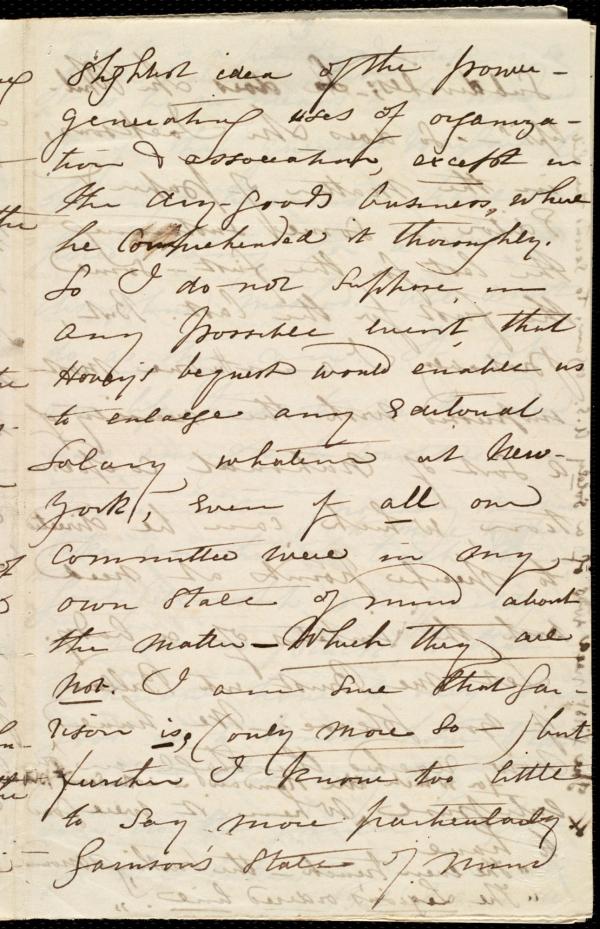 slightest idea of the power-
generating uses of organiza-
tion & association, except in
the dry-goods business, where
he comprehended it thoroughly.
So I do not suppose, in
any possible event, that
Hovey's bequest would enable us
to enlarge any Editorial
Salary whatever at New-
York, even if all our
Committee were in my
own state of mind about
the matter - Which they are
not. I am sure that Gar-
rison is, (only more so - ) but
further I know too little
to say more particularly
Garrison's state of mind